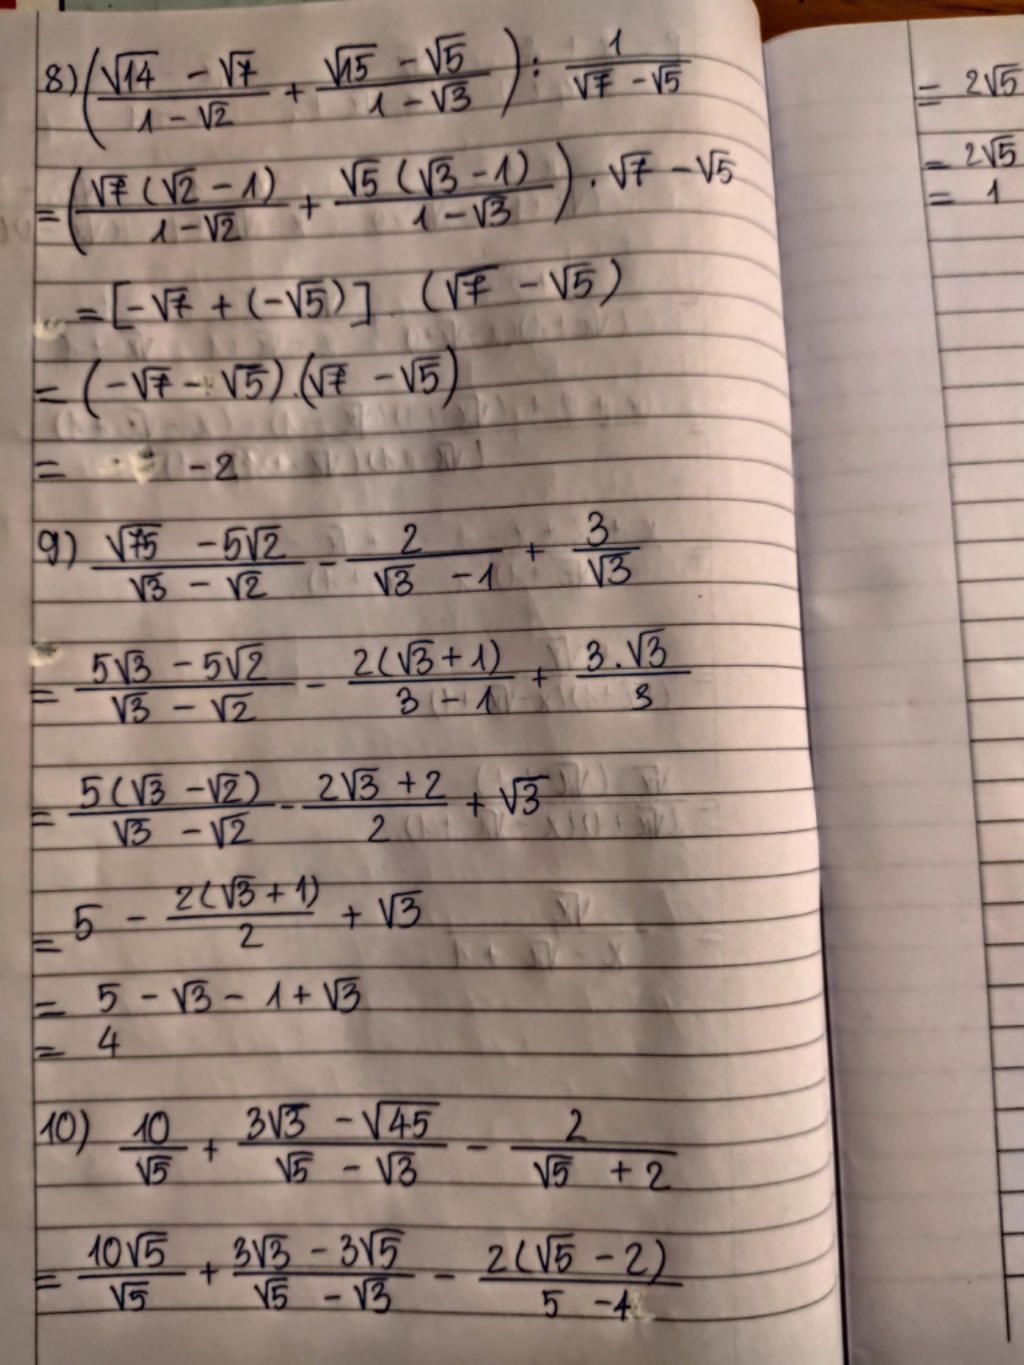 8) (√14 - √7 / 1 - √2 + √15 - √5 / 1 - √3) : 1 / √7 - √5
= (√7 (√2 - 1) / 1 - √2 + √5 (√3 - 1) / 1 - √3) . √7 - √5
= [-√7 + (-√5)] . (√7 - √5)
= (-√7 - √5).(√7 - √5)
= -2
9) √75 - 5√2 / √3 - √2 - 2 / √3 - 1 + 3 / √3
= 5√3 - 5√2 / √3 - √2 - 2(√3 + 1) / 3 - 1 + 3.√3 / 3
= 5(√3 - √2) / √3 - √2 - 2√3 + 2 / 2 + √3
= 5 - 2(√3 + 1) / 2 + √3
= 5 - √3 - 1 + √3
= 4
10) 10 / √5 + 3√3 - √45 / √5 - √3 - 2 / √5 + 2
= 10√5 / √5 + 3√3 - 3√5 / √5 - √3 - 2(√5 - 2) / 5 - 4
= 2√5
= 2√5
= 1